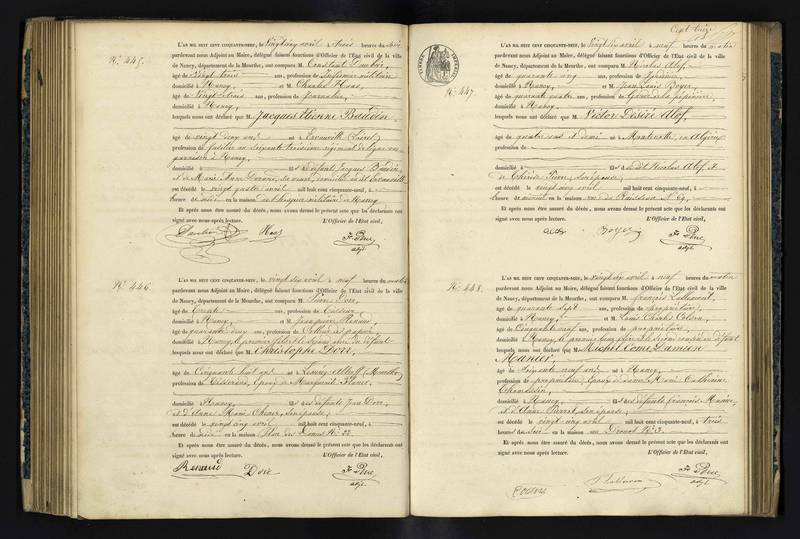 N.° 445.
L'AN MIL HUIT CENT CINQUANTE-NEUF, le vingt cinq avril à trois heures du soir
pardevant nous Adjoint au Maire, délégué faisant fonctions d'Officier de l'Etat civil de la ville
de Nancy, département de la Meurthe, ont comparu M. Constant
âgé de vingt trois ans, profession de Infirmier militaire
domicilié à Nancy, et M. Charles Haas,
âgé de ans, profession de Journalier,
domicilié à Nancy,
lesquels nous ont déclaré que M. Jacques Etienne Baudin
âgé de vingt deux ans né à (Loiret)
profession de fusilier au soixante treizième régiment de ligne en
garnison à Nancy,
domicilié à fils de défunts Jacques Baudin,
et de Marie Anne sa veuve, domiciliée
est décédé le vingt quatre avril mil huit cent cinquante-neuf, à
heure de midi en la maison de l'hospice militaire de Nancy
Et après nous être assuré du décès, nous avons dressé le présent acte que les déclarants ont
signé avec nous après lecture. L'Officier de l'Etat civil,
Haas
adjt.
N.° 446.
L'AN MIL HUIT CENT CINQUANTE-NEUF, le vingt six avril à neuf heures du matin
pardevant nous Adjoint au Maire, délégué faisant fonctions d'Officier de l'Etat civil de la ville
de Nancy, département de la Meurthe, ont comparu M. Pierre Doré,
âgé de trente ans, profession de
domicilié à Nancy, et M. Renaud
âgé de quarante cinq ans, profession de
domicilié à Nancy, le premier fils et le second ami du défunt
lesquels nous ont déclaré que M. Christophe Doré,
âgé de Cinquante huit ans né à (Moselle)
profession de époux de Marguerite
domicilié à Nancy, fils des défunts Jean Doré,
et d'Anne Marie son épouse,
est décédé le vingt cinq avril mil huit cent cinquante-neuf, à
heure de en la maison Place des Dames N.° 22.
Et après nous être assuré du décès, nous avons dressé le présent acte que les déclarants ont
signé avec nous après lecture. L'Officier de l'Etat civil,
Renaud Doré
adjt.
Cent treize
N.° 447.
L'AN MIL HUIT CENT CINQUANTE-NEUF, le vingt six avril à neuf heures du matin
pardevant nous Adjoint au Maire, délégué faisant fonctions d'Officier de l'Etat civil de la ville
de Nancy, département de la Meurthe, ont comparu M. Nicolas Alof,
âgé de quarante cinq ans, profession de
domicilié à Nancy, et M. Jean Louis Boyer,
âgé de quarante quatre ans, profession de
domicilié à Nancy,
lesquels nous ont déclaré que M. Victor Désiré Alof,
âgé de quatre ans et demi né à en Algérie
profession de
domicilié à fils dudit Nicolas Alof, et
de Thérèse son épouse,
est décédé le vingt cinq avril mil huit cent cinquante-neuf, à
heure de minuit en la maison N.° 69.
Et après nous être assuré du décès, nous avons dressé le présent acte que les déclarants ont
signé avec nous après lecture. L'Officier de l'Etat civil,
Boyer
adjt.
N.° 448.
L'AN MIL HUIT CENT CINQUANTE-NEUF, le vingt six avril à neuf heures du matin
pardevant nous Adjoint au Maire, délégué faisant fonctions d'Officier de l'Etat civil de la ville
de Nancy, département de la Meurthe, ont comparu M. françois Lallement,
âgé de quarante sept ans, profession de propriétaire,
domicilié à Nancy, et M. Louis Charles Colson,
âgé de Cinquante neuf ans, profession de propriétaire,
domicilié à Nancy, le premier beau frère et le second cousin du défunt
lesquels nous ont déclaré que M. Michel Come Damien
Manier,
âgé de soixante neuf ans né à Nancy,
profession de propriétaire, époux de dame Marie Catherine
domicilié à Nancy, fils des défunts françois Manier,
et d'Anne Pierrot son épouse,
est décédé le vingt cinq avril mil huit cent cinquante-neuf, à trois
heures du soir en la maison rue
Et après nous être assuré du décès, nous avons dressé le présent acte que les déclarants ont
signé avec nous après lecture. L'Officier de l'Etat civil,
Colson Lallement
adjt.